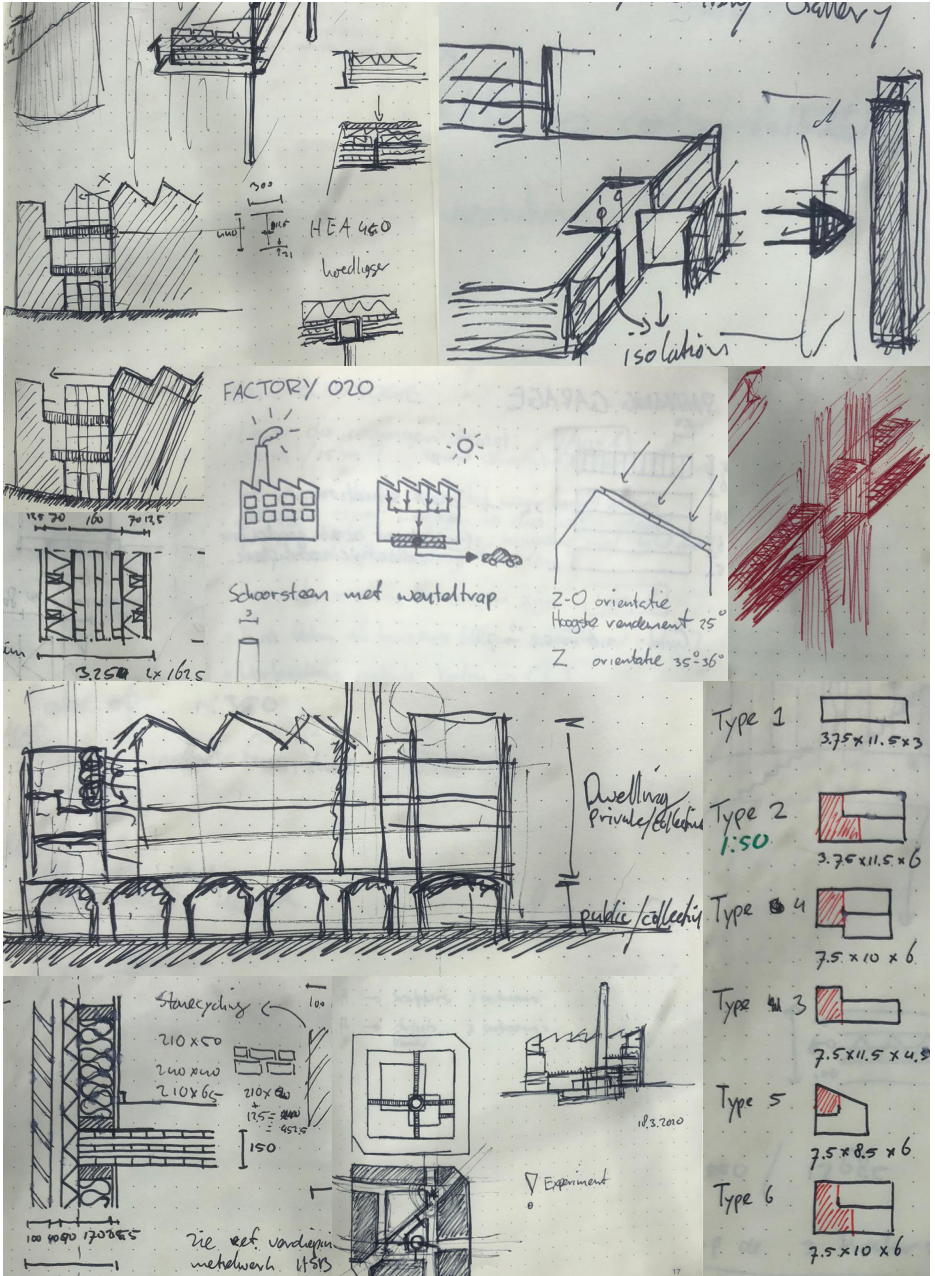 Gallery
300
X
HEA 450
hoedligger
isolation
FACTORY 020
Schoorsteen met wenteltrap
Z-O orientatie
Hoogste rendement 25°
Z orientatie 35°-36°
12,5 70 100 70 12,5
3.250 2x 162,5
Dwelling
private/collective
public/collectiv
Type 1
3.75 x 11.5 x 3
Type 2
1:50
3.75 x 11.5 x 6
Type 4
7.5 x 10 x 6
Type 3
7.5 x 11.5 x 4.5
Type 5
7.5 x 8.5 x 6
Type 6
7.5 x 10 x 6
Stonecycling
100
210 x 50
240 x 40
210 x 65
150
zie ref. verdieping
metselwerk HSB
18.3.2020
Experiment
17